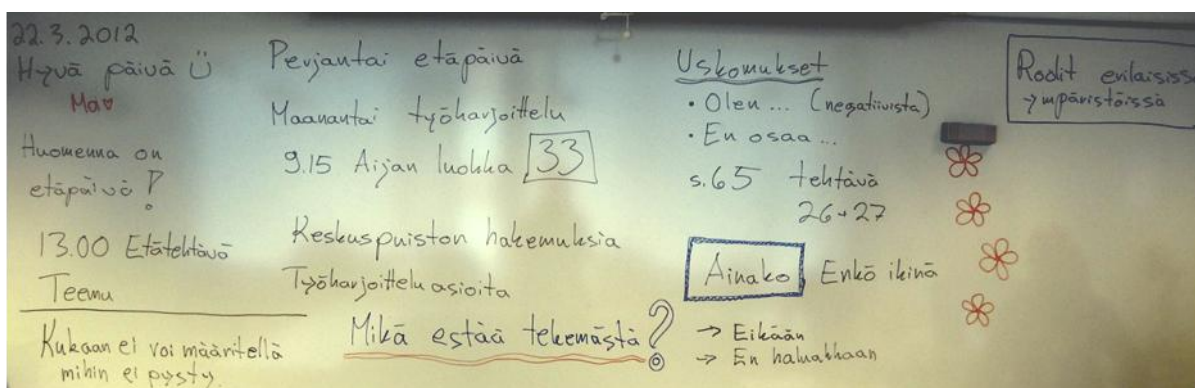 22.3.2012
Hyvä päivä Ü
Ma♥
Huomenna on
etäpäivä!
13.00 Etätehtävä
Teemu
Kukaan ei voi määritellä
mihin ei pysty.
Perjantai etäpäivä
Maanantai työharjoittelu
9.15 Aijan luokka 33
Keskuspuiston hakemuksia
Työharjoittelu asioita
Mikä estää tekemästä?
Uskomukset
• Olen... (negatiivista)
• En osaa...
s.65 tehtävä
26+27
Ainako Enkö ikinä
→ Eikään
→ En haluakkaan
Roolit erilaisiss
→ ympäristöissä